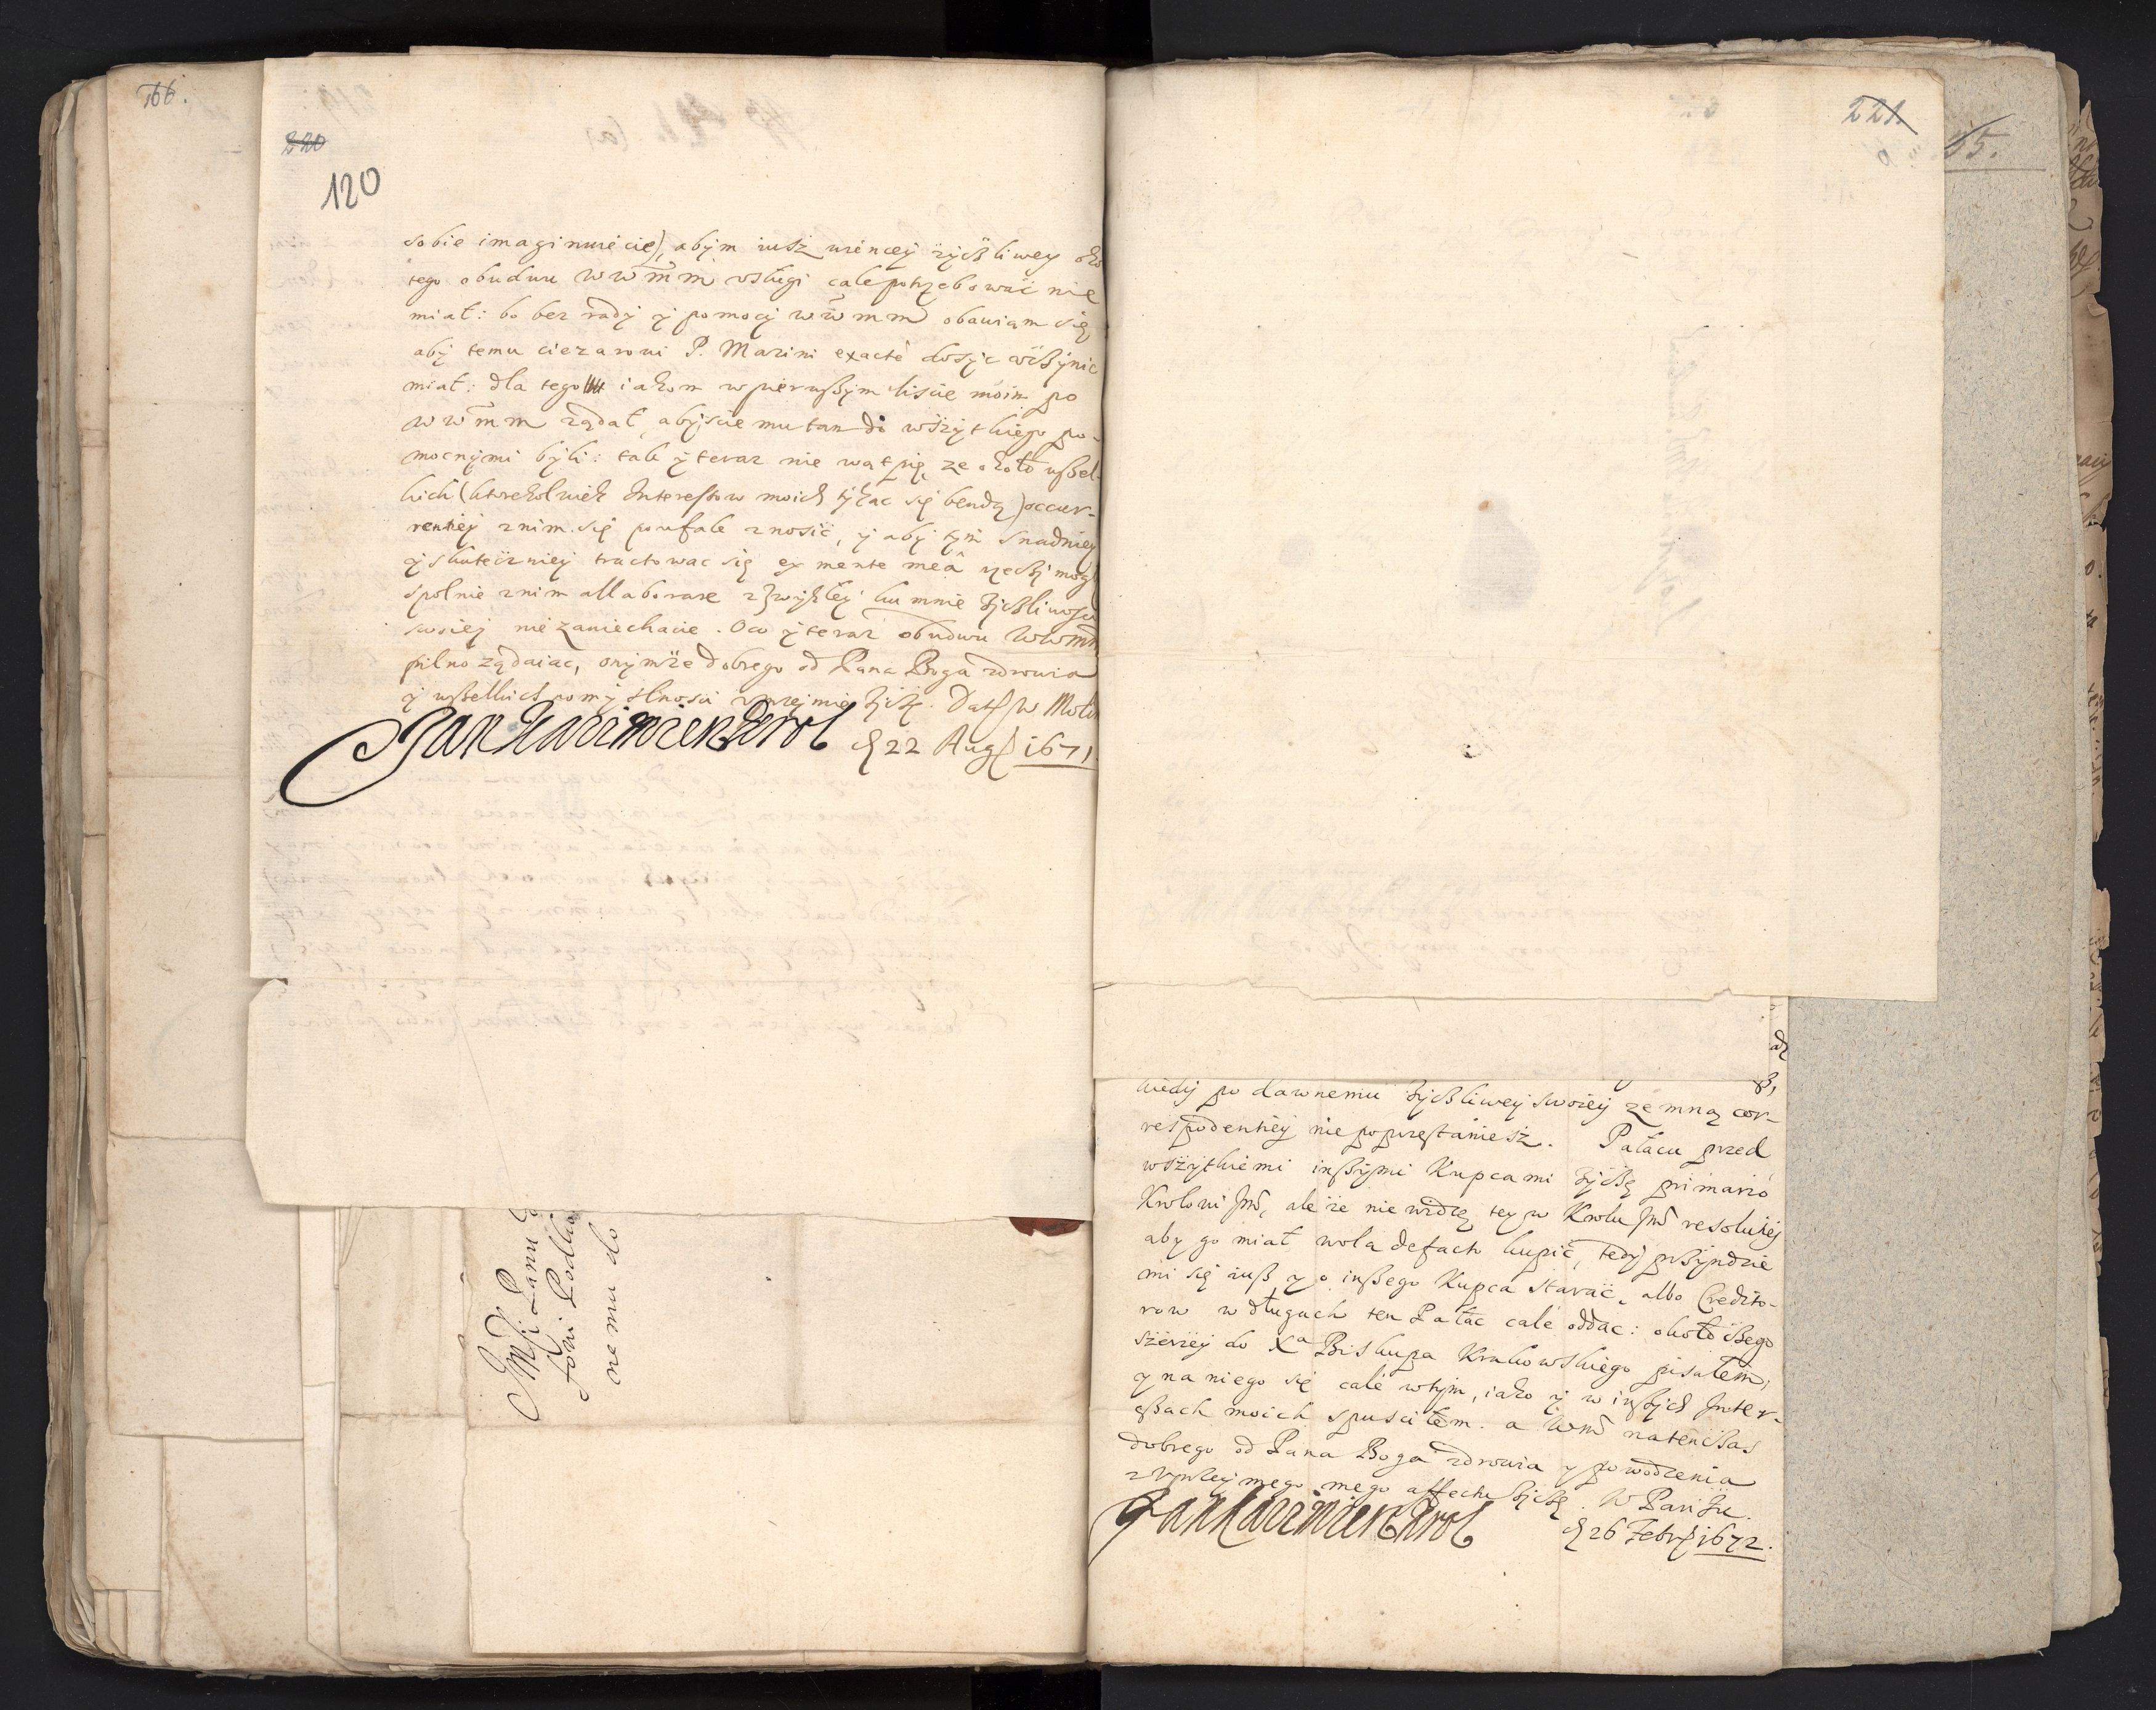 166.
220
120
sobie imaginuiecie), abym iusz wiencey życzliwey oko
tego obudwu WWMM usługi cale potrzebować nie
miał: bo bez rady y pomocy WWMM obawiam się
aby temu ciezarowi P. Marini exacte dosyc uczynic
miał: dla tego iakom w pierwszym liscie moim po
WWMM ządał, abyscie mu tam do wszytkiego po-
mocnymi byli: tak y teraz nie wątpię, ze około wszel-
kich (ktorekolwiek Interessow moich tykac się bendą) occur-
rentiey z nim się poufale znosić, y aby tym snadniey
y skuteczniey tractowac się ex mente meâ rzeczy mogł
spolnie z nim allaborare z zwykłey ku mnie życzliwosci
swoiey nie zaniechacie. Oco y teraz obudwu WWMM
pilno ządaiac, onymże dobrego od Pana Boga zdrowia
y wszelkich pomyslnosci uprzejmie życzę. Dat w Molin
Jan Kazimierz Krol d 22 Aug 1671.
221.
55.
kiedy po dawnemu życzliwey swoiey ze mną cor-
respodentiey nie poprzestaniesz. Pałacu przed
wszytkiemi inszymi Kupcami życzę primario
Krolowi Jm, ale że nie widzę tey w Krolu Jm resolutiey
aby go miał wola defacto kupić, tedy przyndzie
mi się iusz y o inszego Kupca starać, albo Credito-
row w długach ten Pałac cale oddac: około czego
szerzey do Xa Biskupa Krakowskiego pisałem,
y na niego się cale w tym, iako y w inszych Inter-
essach moich spusciłem. a Wm natenczas
dobrego od Pana Boga zdrowia y powodzenia
z uprzeymego mego affectu życzę. W Pariżu.
Jan Kazimierz Krol d 26 Febr 1672.
Jmsci Panu
stoni Podkom
nemu do